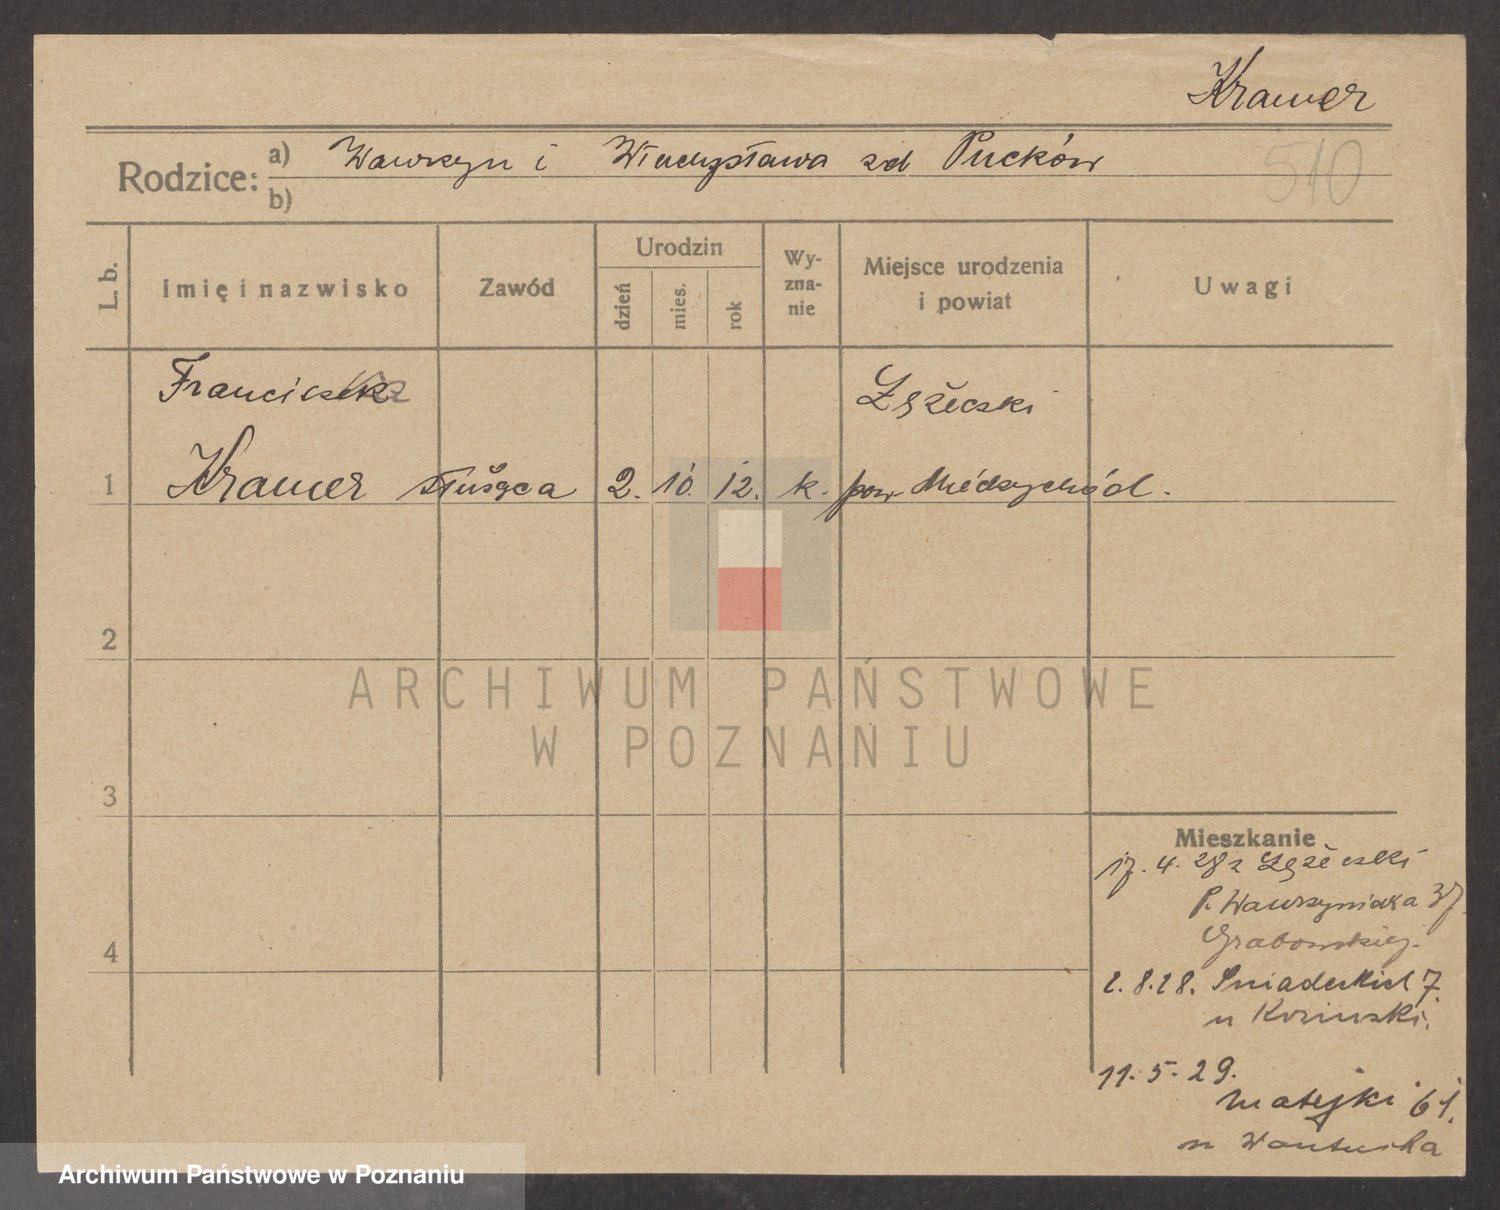 Kramer
Rodzice: a) Wawrzyn i Władysława zd Pucków
b)
510
L. b.
Imię i nazwisko
Zawód
Urodzin
dzień
mies.
rok
Wy-
zna-
nie
Miejsce urodzenia
i powiat
Uwagi
Łężeczki
1 Kramer służąca 2. 10. 12. k. pow Międzychód.
2
ARCHIWUM PAŃSTWOWE
W POZNANIU
3
4
Mieszkanie
17. 4. 28 z Łężeczki
P. Wawrzyniaka 37.
Grabowskiej.
2.8.28. Śniadeckich 7.
u
11. 5. 29.
Matejki 61.
u
Archiwum Państwowe w Poznaniu